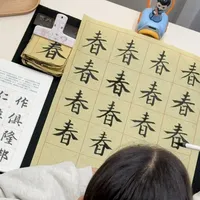 春
春 春 春 春
春 春 春 春
春 春 春
春 春
仁 作
俱
隆
郎